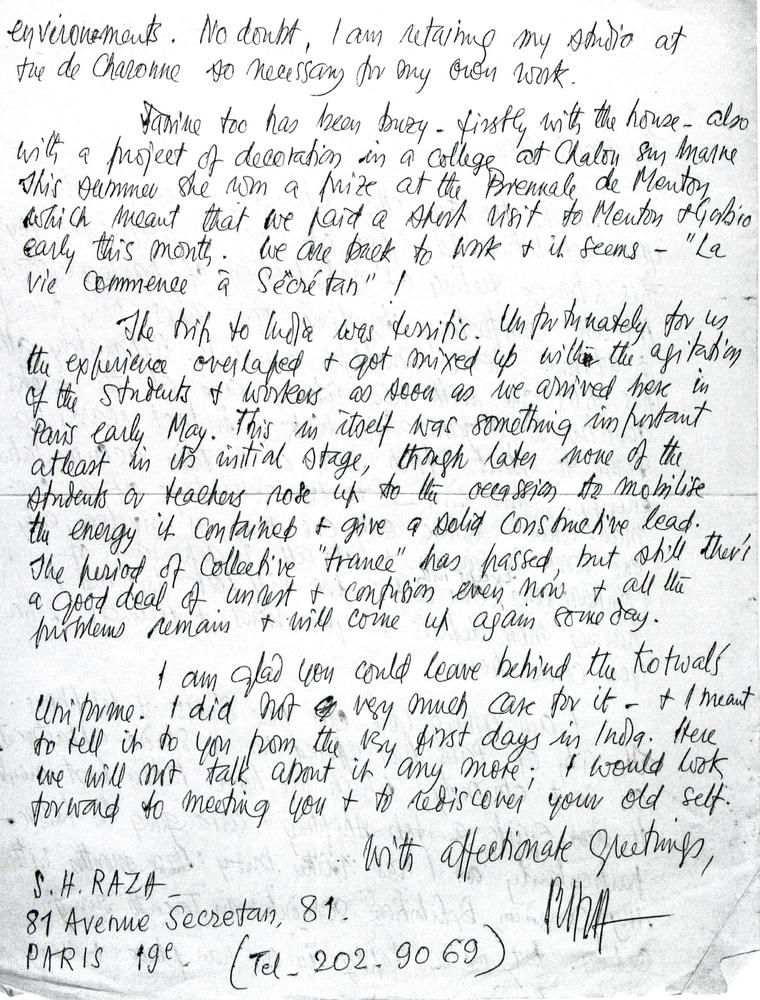 environements. No doubt, I am retaining my studio at
rue de Charonne so necessary for my own work.
Janine too has been buzy - firstly with the house - also
with a project of decoration in a college at Chalon sur Marne
This summer she won a prize at the Biennale de Menton,
which meant that we paid a short visit to Menton & Gorbio
early this month. We are back to work & it seems - "La
vie commence à Sécrétan" !
The trip to India was terrific. Unfortunately for us
the experience overlaped & got mixed up with the agitation
of the students & workers as soon as we arrived here in
Paris early May. This in itself was something important
atleast in its initial stage, though later none of the
students or teachers rose up to the occassion to mobilise
the energy it contained & give a solid constructive lead.
The period of collective "trance" has passed, but still there's
a good deal of unrest & confusion even now & all the
problems remain & will come up again some day.
I am glad you could leave behind the Kotwal's
Uniforme. I did not very much care for it - & I meant
to tell it to you from the very first days in India. Here
we will not talk about it any more; I would look
forward to meeting you & to rediscover your old self.
With affectionate greetings,
S. H. RAZA
81 Avenue Secretan, 81.
PARIS 19e. (Tel - 202 - 90 69)